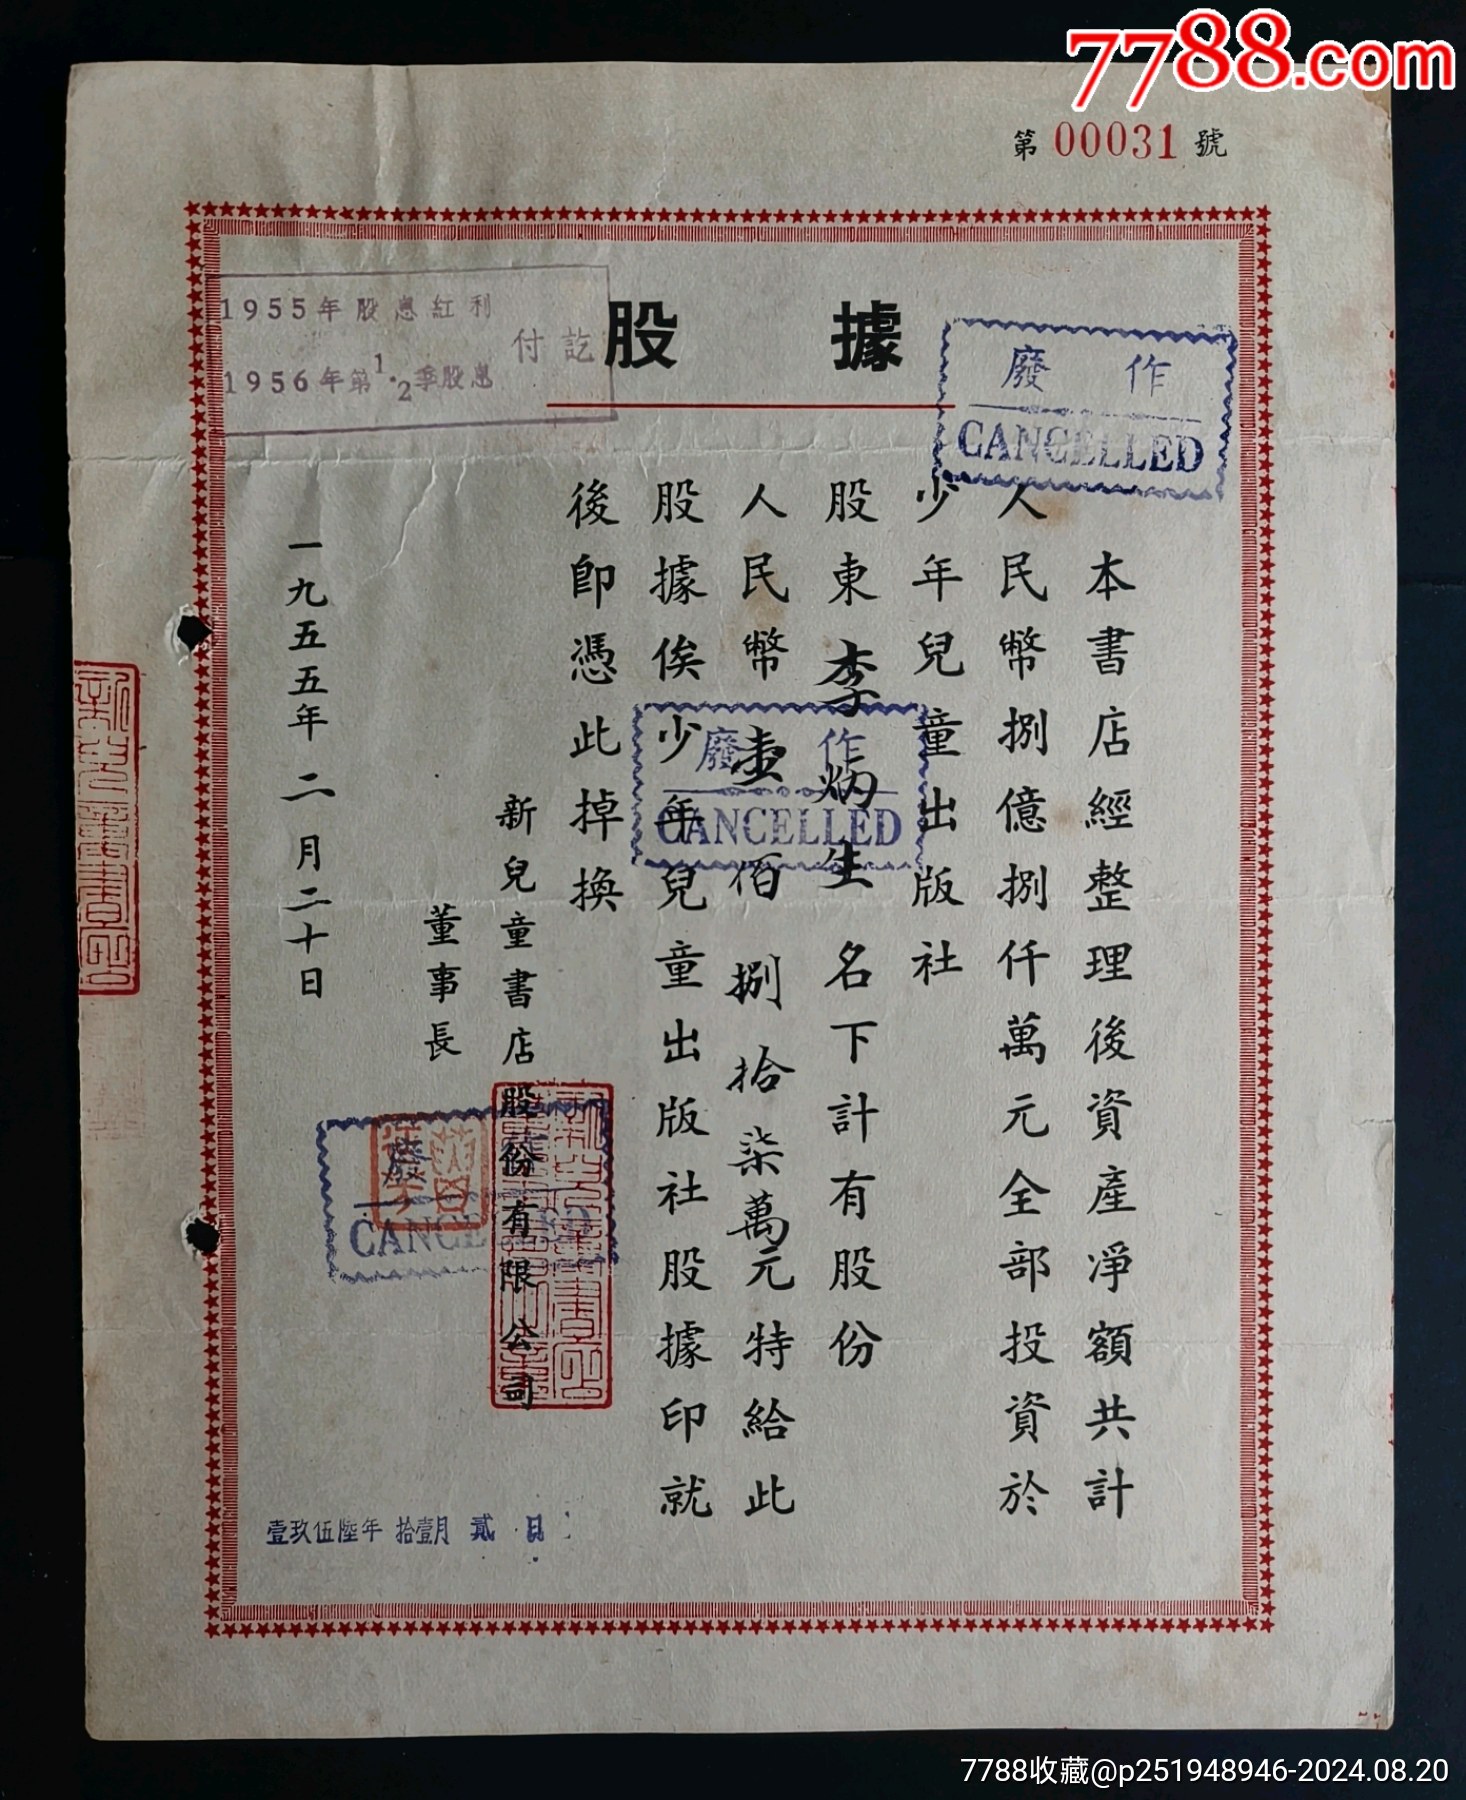 7788.com
第 00031 號
股 據
1955年股息紅利
1956年第1.2季股息
付訖
作 廢
CANCELLED
本書店經整理後資產淨額共計
人民幣捌億捌仟萬元全部投資於
少年兒童出版社
股東李炳生名下計有股份
人民幣壹佰捌拾柒萬元特給此
股據俟少年兒童出版社股據印就
後即憑此掉換
作 廢
CANCELLED
新兒童書店股份有限公司
董事長
廢
CANCELLED
一九五五年二月二十日
壹玖伍陸年 拾壹月 貳 日
7788收藏@p251948946-2024.08.20